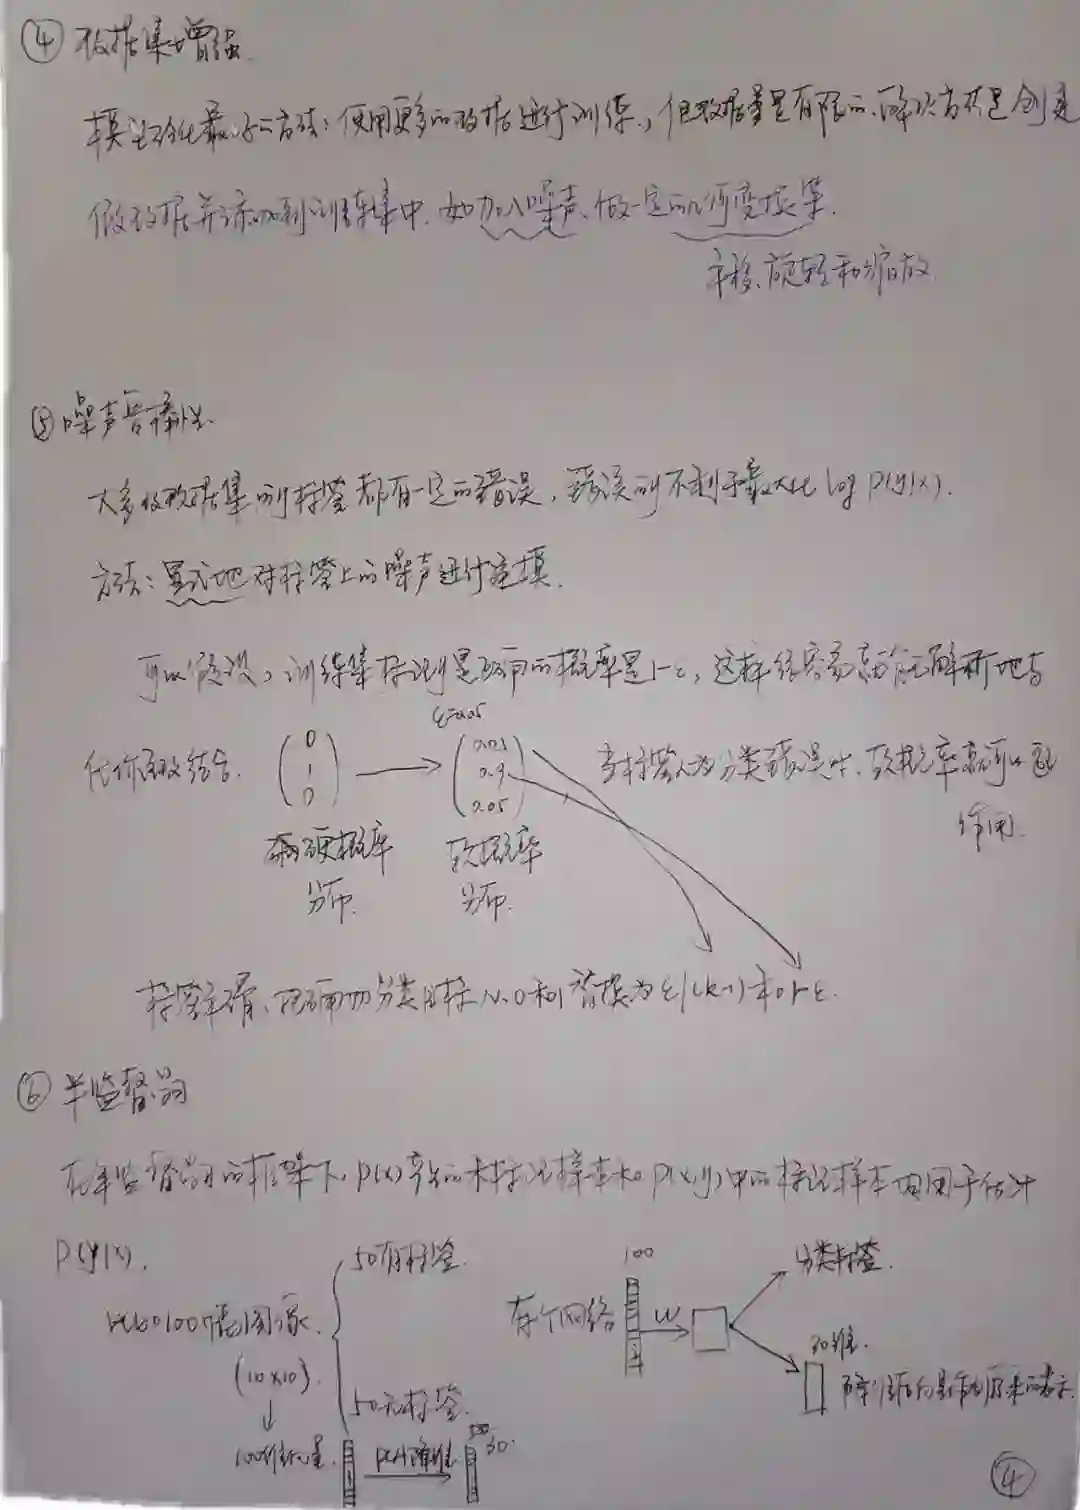 ④ 数据集增强.
模型泛化最好的方法:使用更多的数据进行训练,但数据量是有限的.解决方法是创建
假数据并添加到训练集中.如加入噪声、做一定的几何变换等.
平移、旋转和缩放.
⑤ 噪声鲁棒性.
大多数数据集的标签都有一定的错误,错误的不利于最大化 log P(y|x).
方法:显式地对标签上的噪声进行建模.
可以假设,训练集标记是正确的概率是1-ε,这样很容易就能解析地与
ε=0.05
代价函数结合. (0 1 0) → (0.05 0.9 0.05) 当标签为分类错误时,软概率就可以起
作用.
硬概率 软概率
分布. 分布.
标签平滑、把确切分类目标从0和1替换为ε/(k-1)和1-ε.
⑥ 半监督学习
在半监督学习的框架下,P(x)产生的未标记样本和P(x,y)中的标记样本均用于估计
P(y|x).
50有标签.
100
分类标签.
100幅图像.
有个网络
W
30维.
(10×10).
降维后的是作为原来的表示.
50无标签.
100维向量
PCA降维
30.
④